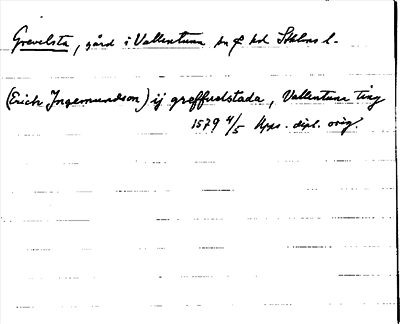 Grevelsta, gård i Vallentuna sn o hd Sthlms l.
(Erich Ingemundson) ij greffuelstada, Vallentuna ting
1579 4/5 Upps. dipl. orig.